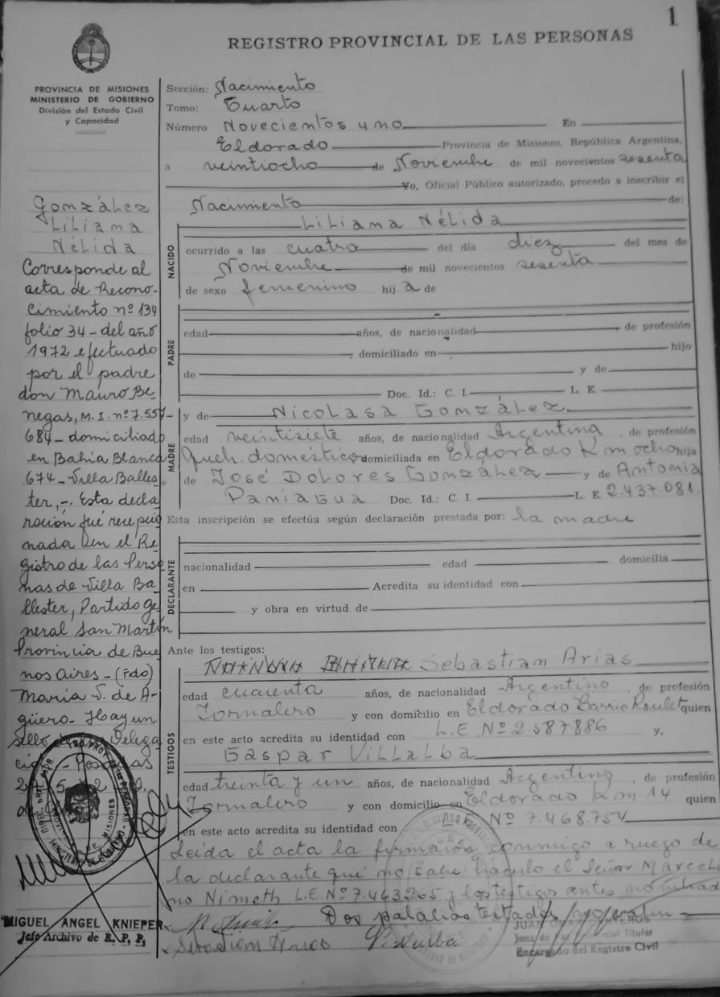 1
REGISTRO PROVINCIAL DE LAS PERSONAS
PROVINCIA DE MISIONES
MINISTERIO DE GOBIERNO
División del Estado Civil
y Capacidad
Sección: Nacimiento
Tomo: Cuarto
Número Novecientos uno En
Eldorado Provincia de Misiones, República Argentina,
a veintiocho de Noviembre de mil novecientos sesenta
Yo, Oficial Público autorizado, procedo a inscribir el
Nacimiento de:
NACIDO
Liliana Nélida
ocurrido a las cuatro del día diez del mes de
Noviembre de mil novecientos sesenta
de sexo femenino hija de
PADRE
edad años, de nacionalidad de profesión
, domiciliado en hijo
de y de
Doc. Id.: C. I. L. E.
MADRE
y de Nicolasa González
edad veintisiete años, de nacionalidad Argentina de profesión
Queh. domésticos domiciliada en Eldorado Km ocho hija
de José Dolores González y de Antonia
Paniagua Doc. Id.: C. I. L. E 2.437.081
Esta inscripción se efectúa según declaración prestada por: la madre
DECLARANTE
nacionalidad edad domicilia
en Acredita su identidad con
y obra en virtud de
Ante los testigos:
TESTIGOS
Sebastian Arias
edad cuarenta años, de nacionalidad Argentino de profesión
Jornalero y con domicilio en Eldorado Barrio Roulet quien
en este acto acredita su identidad con L.E Nº 2.587886 y,
Gaspar Villalba
edad treinta y un años, de nacionalidad Argentino de profesión
Jornalero y con domicilio en Eldorado Km 14 quien
en este acto acredita su identidad con Nº 7.468.754
Leída el acta la firmaron conmigo a ruego de
la declarante que no sabe hacerlo el Señor Marceli
no Nimeth L.E.Nº 7.463.265 y los testigos antes nombrad
Dos palabras testadas no valen
Sebastian Arias
González
Liliana
Nélida
Corresponde al
acta de Recono-
cimiento nº 134
folio 34 - del año
1972 efectuado
por el padre
don Mauro Be-
negas, M.I. nº 7.557-
684 - domiciliado
en Bahía Blanca
674 - Villa Balles-
ter, -. Esta decla
ración fué recepcio
nada en el Re-
gistro de las Perso
nas de Villa Ba-
llester, Partido Ge-
neral San Martín
Provincia de Bue
nos Aires - (fdo)
María de A-
güero - Hay un
sello Delega
MIGUEL ANGEL KNIEPER
Jefe Archivo de R. P. P.
Titular
Encargado del Registro Civil